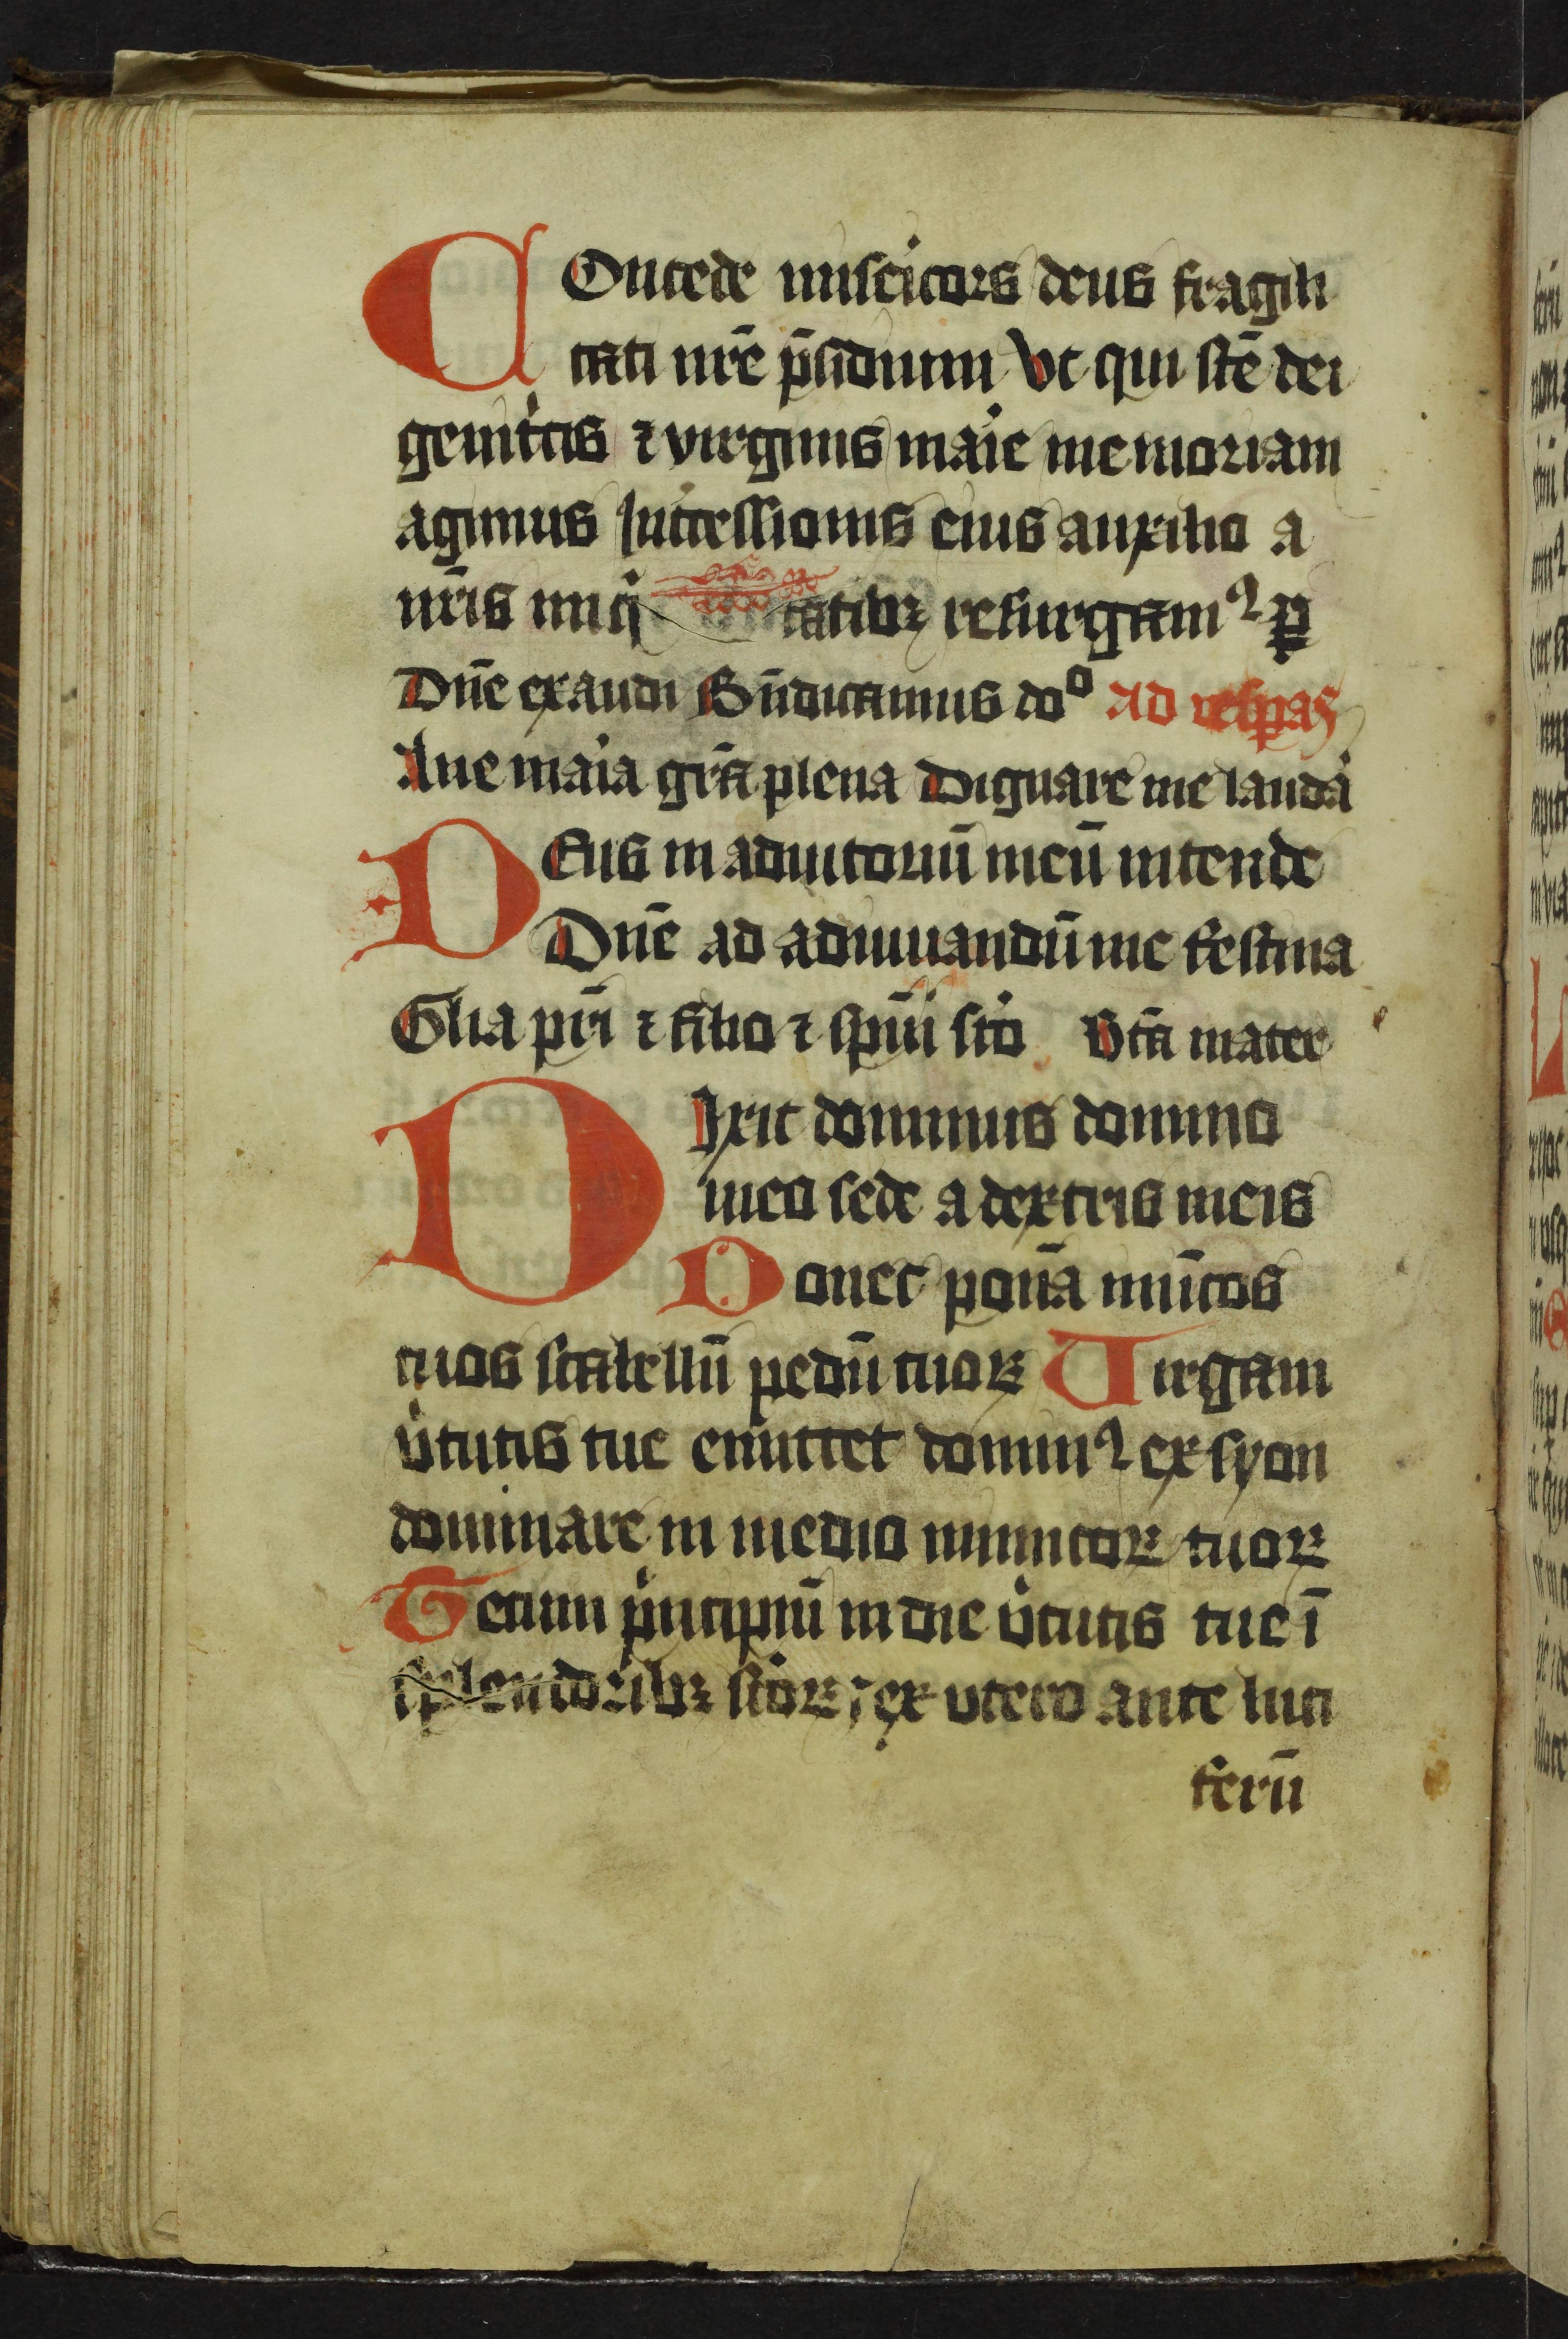 COncede misericors deus fragili
tati nr̄e p̄sidium Vt qui sc̄e dei
genitͥcis ⁊ virginis maͥie memoriam
agimus Intcessionis eius auxilio a
nr̄is iniq tatibꝫ resurgamꝰ ꝑ
Dn̄e exaudi Bn̄dicamus doͦ Ad vesꝑas
Aue maͥia gr̄a plena Dignare me laudaͥ
DEus in adiutoriū meū intende
Dn̄e ad adiuuandū me festina
Gl̄ia pr̄i ⁊ filio ⁊ sp̄ui sc̄o Bt̄a mater
DIxit dominus domino
meo sede a dextris meis
Donec ponā inīcos
tuos scabellū pedū tuoꝝ Virgam
v̓tutis tue emittet dominꝰ ex syon
dominare in medio inimicoꝝ tuoꝝ
Tecum pͥncipiū in die v̓tutis tue ī
splendoribꝫ sc̄oꝝ ex vtero ante luci
ferū